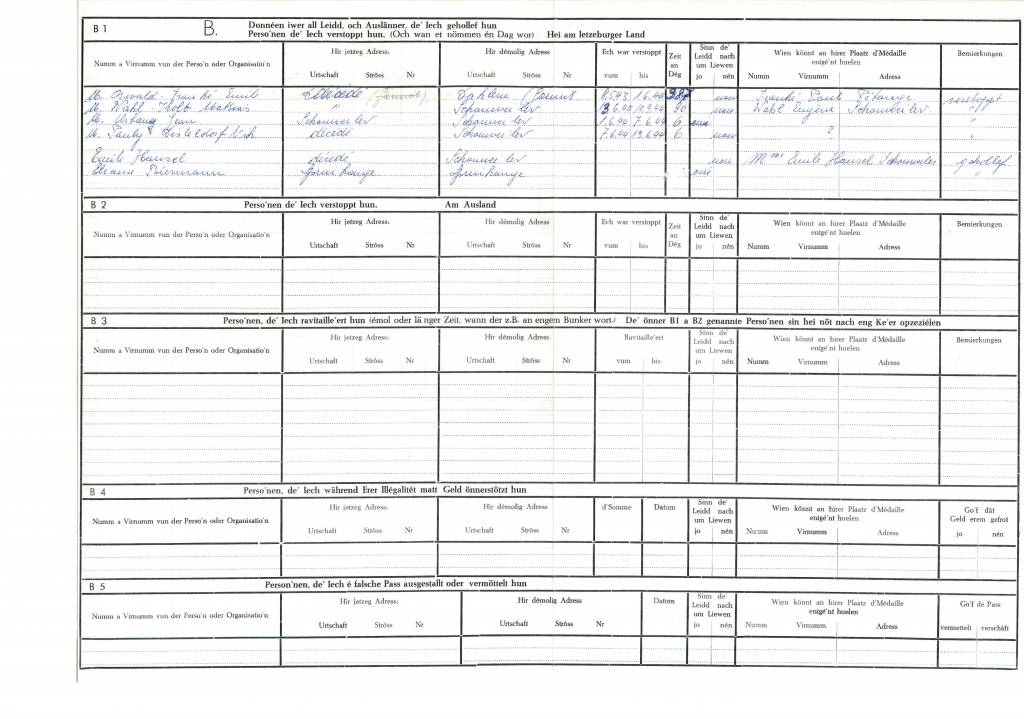 B 1 B. Donnéen iwer all Leidd, och Auslänner, de' Iech gehollef hun
Perso'nen de' Iech verstoppt hun. (Och wan et nömmen én Dag wor) Hei am letzeburger Land
Numm a Virnumm vun der Perso'n oder Organisatio'n
Hir jetzeg Adress:
Urtschaft Ströss Nr
Hir démolig Adress:
Urtschaft Ströss Nr
Ech war verstoppt
vum bis
Zeit an Dég
Sinn de' Leidd nach um Liewen
jo nén
Wien könnt an hirer Plaatz d'Médaille entgé'nt huelen
Numm Virnumm Adress
Bemierkungen
M. Oswald - Franké Emile décédé Dahlem 1.6.44 387 non Franké Paul Pétange verstoppt
M. Wahl - Tholl Mathias " Schouweiler 90 non Wahl Eugène Schouweiler "
M. Urbany Jean Schouweiler Schouweiler 1.6.44 7.6.44 6 oui "
M. Pauly décédé Schouweiler 7.6.44 13.6.44 6 non ? "
Emile Hansel décédé Schouweiler non Mme Emile Hansel Schouweiler gehollef
Biermann oui "
B 2 Perso'nen de' Iech verstoppt hun. Am Ausland
Numm a Virnumm vun der Perso'n oder Organisatio'n
Hir jetzeg Adress:
Urtschaft Ströss Nr
Hir démolig Adress:
Urtschaft Ströss Nr
Ech war verstoppt
vum bis
Zeit an Dég
Sinn de' Leidd nach um Liewen
jo nén
Wien könnt an hirer Plaatz d'Médaille entgé'nt huelen
Numm Virnumm Adress
Bemierkungen
B 3 Perso'nen, de' Iech ravitaille'ert hun (émol oder länger Zeit. wann der z.B. an engem Bunker wort.) De' önner B1 a B2 genannte Perso'nen sin hei nöt nach eng Ke'er opzeziélen
Numm a Virnumm vun der Perso'n oder Organisatio'n
Hir jetzeg Adress:
Urtschaft Ströss Nr
Hir démolig Adress:
Urtschaft Ströss Nr
Ravitaille'ert
vum bis
Sinn de' Leidd nach um Liewen
jo nén
Wien könnt an hirer Plaatz d'Médaille entgé'nt huelen
Numm Virnumm Adress
Bemierkungen
B 4 Perso'nen, de' Iech während Erer Illégalitét matt Geld önnerstötzt hun
Numm a Virnumm vun der Perso'n oder Organisatio'n
Hir jetzeg Adress:
Urtschaft Ströss Nr
Hir démolig Adress:
Urtschaft Ströss Nr
d'Somme
Datum
Sinn de' Leidd nach um Liewen
jo nén
Wien könnt an hirer Plaatz d'Médaille entgé'nt huelen
Numm Virnumm Adress
Go'f dât Geld erem gefrot
jo nén
B 5 Person'nen, de' Iech é falsche Pass ausgestallt oder vermöttelt hun
Numm a Virnumm vun der Perso'n oder Organisatio'n
Hir jetzeg Adress:
Urtschaft Ströss Nr
Hir démolig Adress
Urtschaft Ströss Nr
Datum
Sinn de' Leidd nach um Liewen
jo nén
Wien könnt an hirer Plaatz d'Médaille entgé'nt huelen
Numm Virnumm Adress
Go'f de Pass
vermettelt verschâft